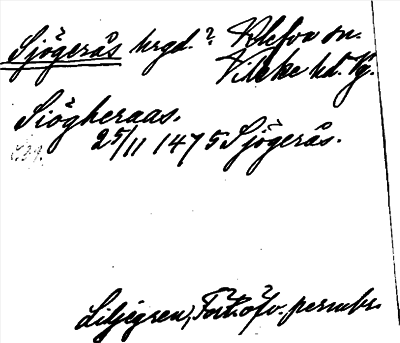 Sjögerås hrgd.? Ulefors sn.
Vilske hd. Vg.
Siögheraas.
25/11 1475 Sjögerås.
Liljegren, Fört. öfv. permbr.